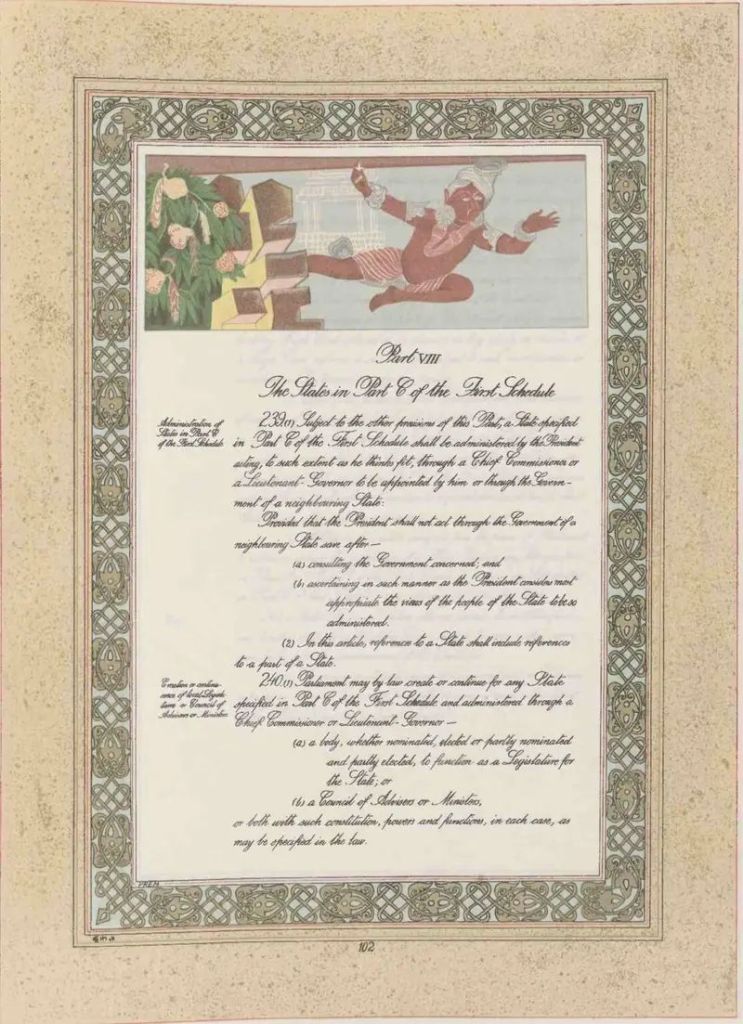 Part VIII
The States in Part C of the First Schedule
Administration of
States in Part C
of the First Schedule
239.(1) Subject to the other provisions of this Part, a State specified
in Part C of the First Schedule shall be administered by the President
acting, to such extent as he thinks fit, through a Chief Commissioner or
a Lieutenant-Governor to be appointed by him or through the Govern-
ment of a neighbouring State:
Provided that the President shall not act through the Government of a
neighbouring State save after—
(a) consulting the Government concerned; and
(b) ascertaining in such manner as the President considers most
appropriate the views of the people of the State to be so
administered.
(2) In this article, reference to a State shall include references
to a part of a State.
Creation or continu-
ance of local Legisla-
ture or Council of
Advisers or Ministers
240.(1) Parliament may by law create or continue for any State
specified in Part C of the First Schedule and administered through a
Chief Commissioner or Lieutenant-Governor—
(a) a body, whether nominated, elected or partly nominated
and partly elected, to function as a Legislature for
the State; or
(b) a Council of Advisers or Ministers,
or both with such constitution, powers and functions, in each case, as
may be specified in the law.
PREM
102